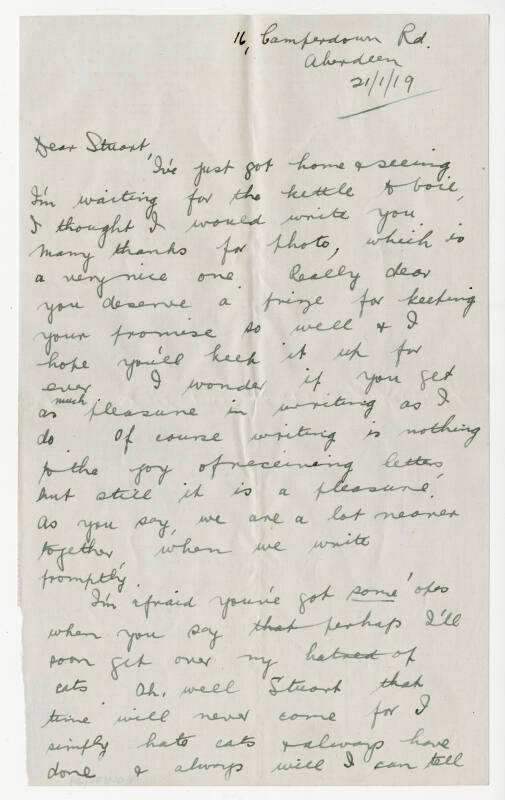 16, Camperdown Rd.
Aberdeen
21/1/19
Dear Stuart,
I've just got home & seeing
I'm waiting for the kettle to boil,
I thought I would write you.
Many thanks for photo, which is
a very nice one. Really dear
you deserve a prize for keeping
your promise so well & I
hope you'll keep it up for
ever. I wonder if you get
as much pleasure in writing as I
do. Of course writing is nothing
to the joy of receiving letters
but still it is a pleasure.
As you say, we are a lot nearer
together when we write
promptly.
I'm afraid you've got some 'opes
when you say that perhaps I'll
soon get over my hatred of
cats. Ah, well Stuart that
time will never come for I
simply hate cats & always have
done & always will I can tell